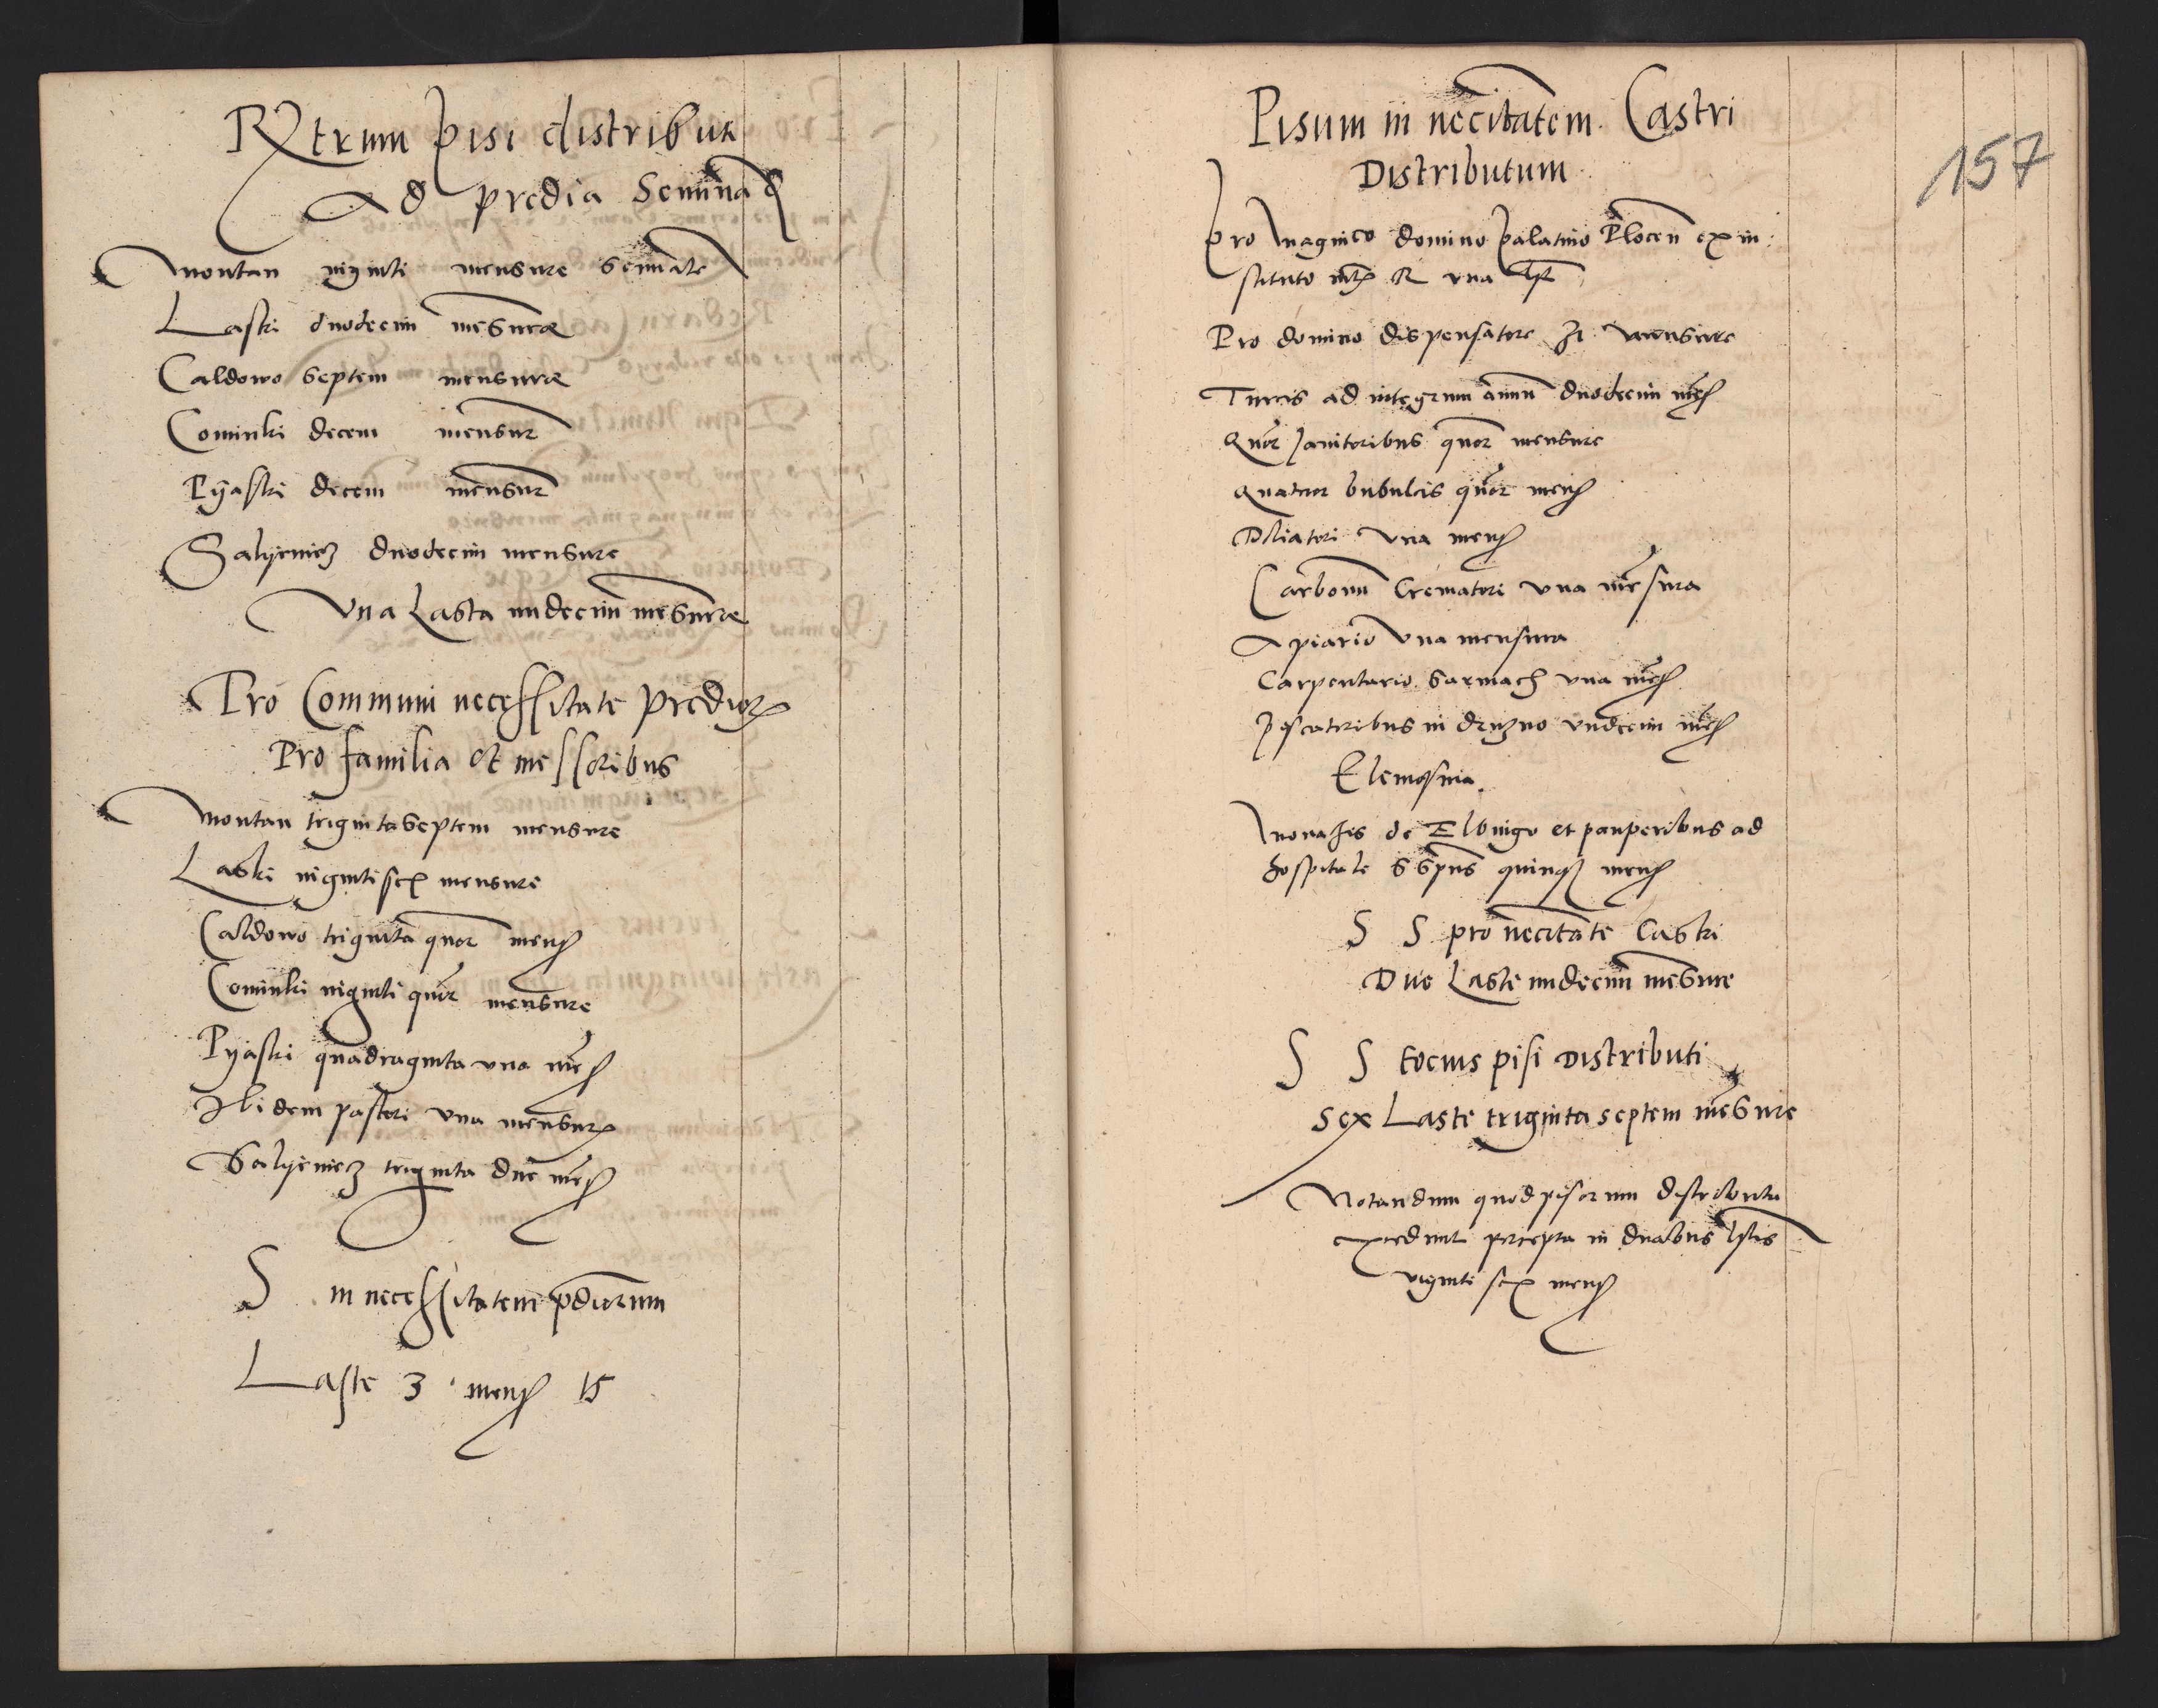 Rxtrum pisi distribut
Ad predia Seminad
Montan viginti mensure seminate
Laski duodecim mēsuræ
Caldowo septem mensuræ
Cominki decem mensur
Pyaski decem mensur
Salyenicz duodecim mensure
Vna Lasta vndecim mēsuræ
Pro Communi necessitate predior
Pro familia et messoribus
Montan triginta septem mensure
Laski viginti sex mensure
Caldowo triginta quor mens
Cominki viginti quor mensure
Pyaski quadraginta vna mēs
Ibidem pastori vna mensur
Salyenicz triginta due mēs
S in necessitatem pdiorum
Laste 3 mens 15
157
Pisum in necitatem Castri
Distributum
Pro Magnico domino palatino Plocen ex in:
stituto R vna lst
Pro domino dispensatore mensure
Turris ad integrum annū duodecim mēs
Quor Janitoribus quor mensure
Quatuor bubulcis quor mens
Doliatori vna mens
Carbonū Crematori vna mēsura
Apiario vna mensura
Carpentario Sarmach vna mēs
piscatoribus in druzno vndecim mēs
Elemosina.
Monachis de Elbingo et pauperibus ad
hospitale S Spūs quinq mens
S S pro necitate Castri
Due Laste vndecim mēsure
S S tocius pisi Distributi
Sex Laste triginta septem mēsure
Notandum quod pisorum distributa
excedunt percepta in duabus lstis
viginti sex mens